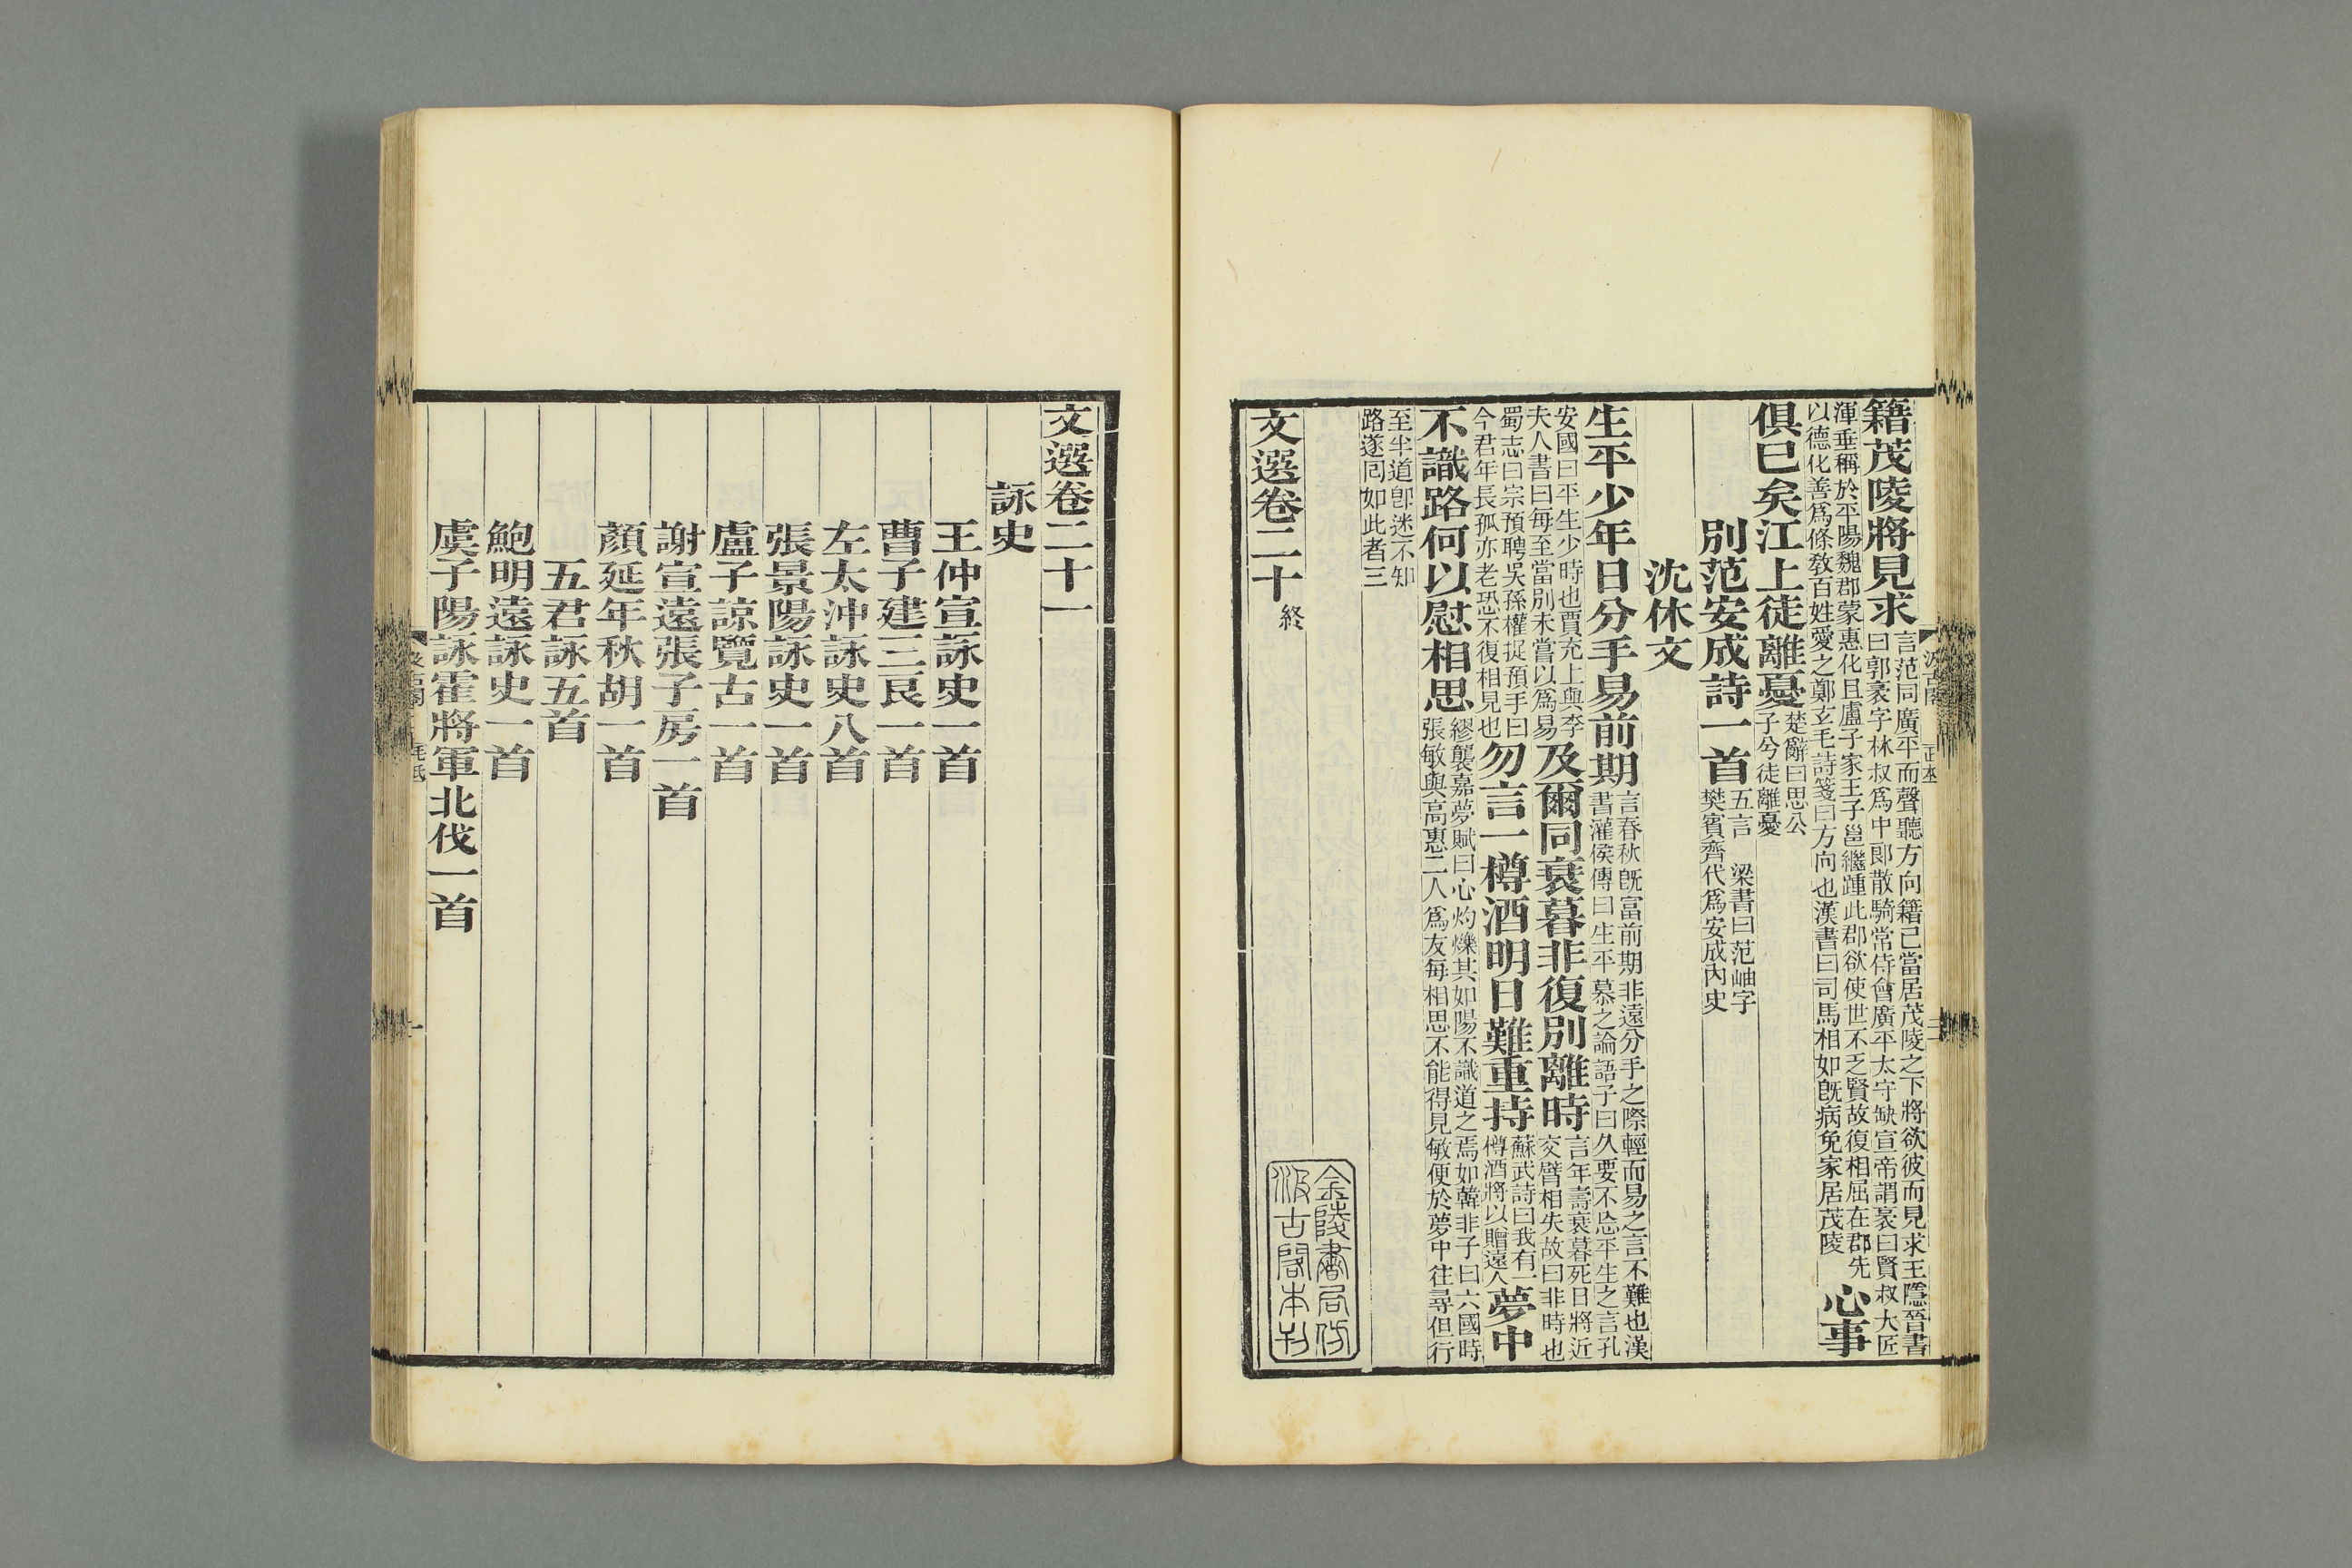 籍茂陵將見求言范同廣平而聲聽方向籍己當居茂陵之下將欲彼而見求王隱晉書
曰郭袤字林叔爲中郎散騎常侍會廣平太守缺宣帝謂袤曰賢叔大匠
渾垂稱於平陽魏郡蒙惠化且盧子家王子邕繼踵此郡欲使世不乏賢故復相屈在郡先
以德化善爲條敎百姓愛之鄭玄毛詩箋曰方向也漢書曰司馬相如旣病免家居茂陵心事
俱已矣江上徒離憂楚辭曰思公
子兮徒離憂
別范安成詩一首五言 梁書曰范岫字
樊賓齊代爲安成內史
沈休文
生平少年日分手易前期言春秋旣富前期非遠分手之際輕而易之言不難也漢
書灌侯傳曰生平慕之論語子曰久要不忘平生之言孔
安國曰平生少時也賈充上與李
夫人書曰每至當別未嘗以爲易及爾同衰暮非復別離時言年壽衰暮死日將近
交臂相失故曰非時也
蜀志曰宗預聘吳孫權捉預手曰
今君年長孤亦老恐不復相見也勿言一樽酒明日難重持蘇武詩曰我有一
樽酒將以贈遠人夢中
不識路何以慰相思繆襲嘉夢賦曰心灼爍其如陽不識道之焉如韓非子曰六國時
張敏與高惠二人爲友每相思不能得見敏便於夢中往尋但行
至半道卽迷不知
路遂囘如此者三
文選卷二十 終
金陵書局仿
汲古閣本刊
文選卷二十一
詠史
王仲宣詠史一首
曹子建三良一首
左太沖詠史八首
張景陽詠史一首
盧子諒覽古一首
謝宣遠張子房一首
顏延年秋胡一首
五君詠五首
鮑明遠詠史一首
虞子陽詠霍將軍北伐一首